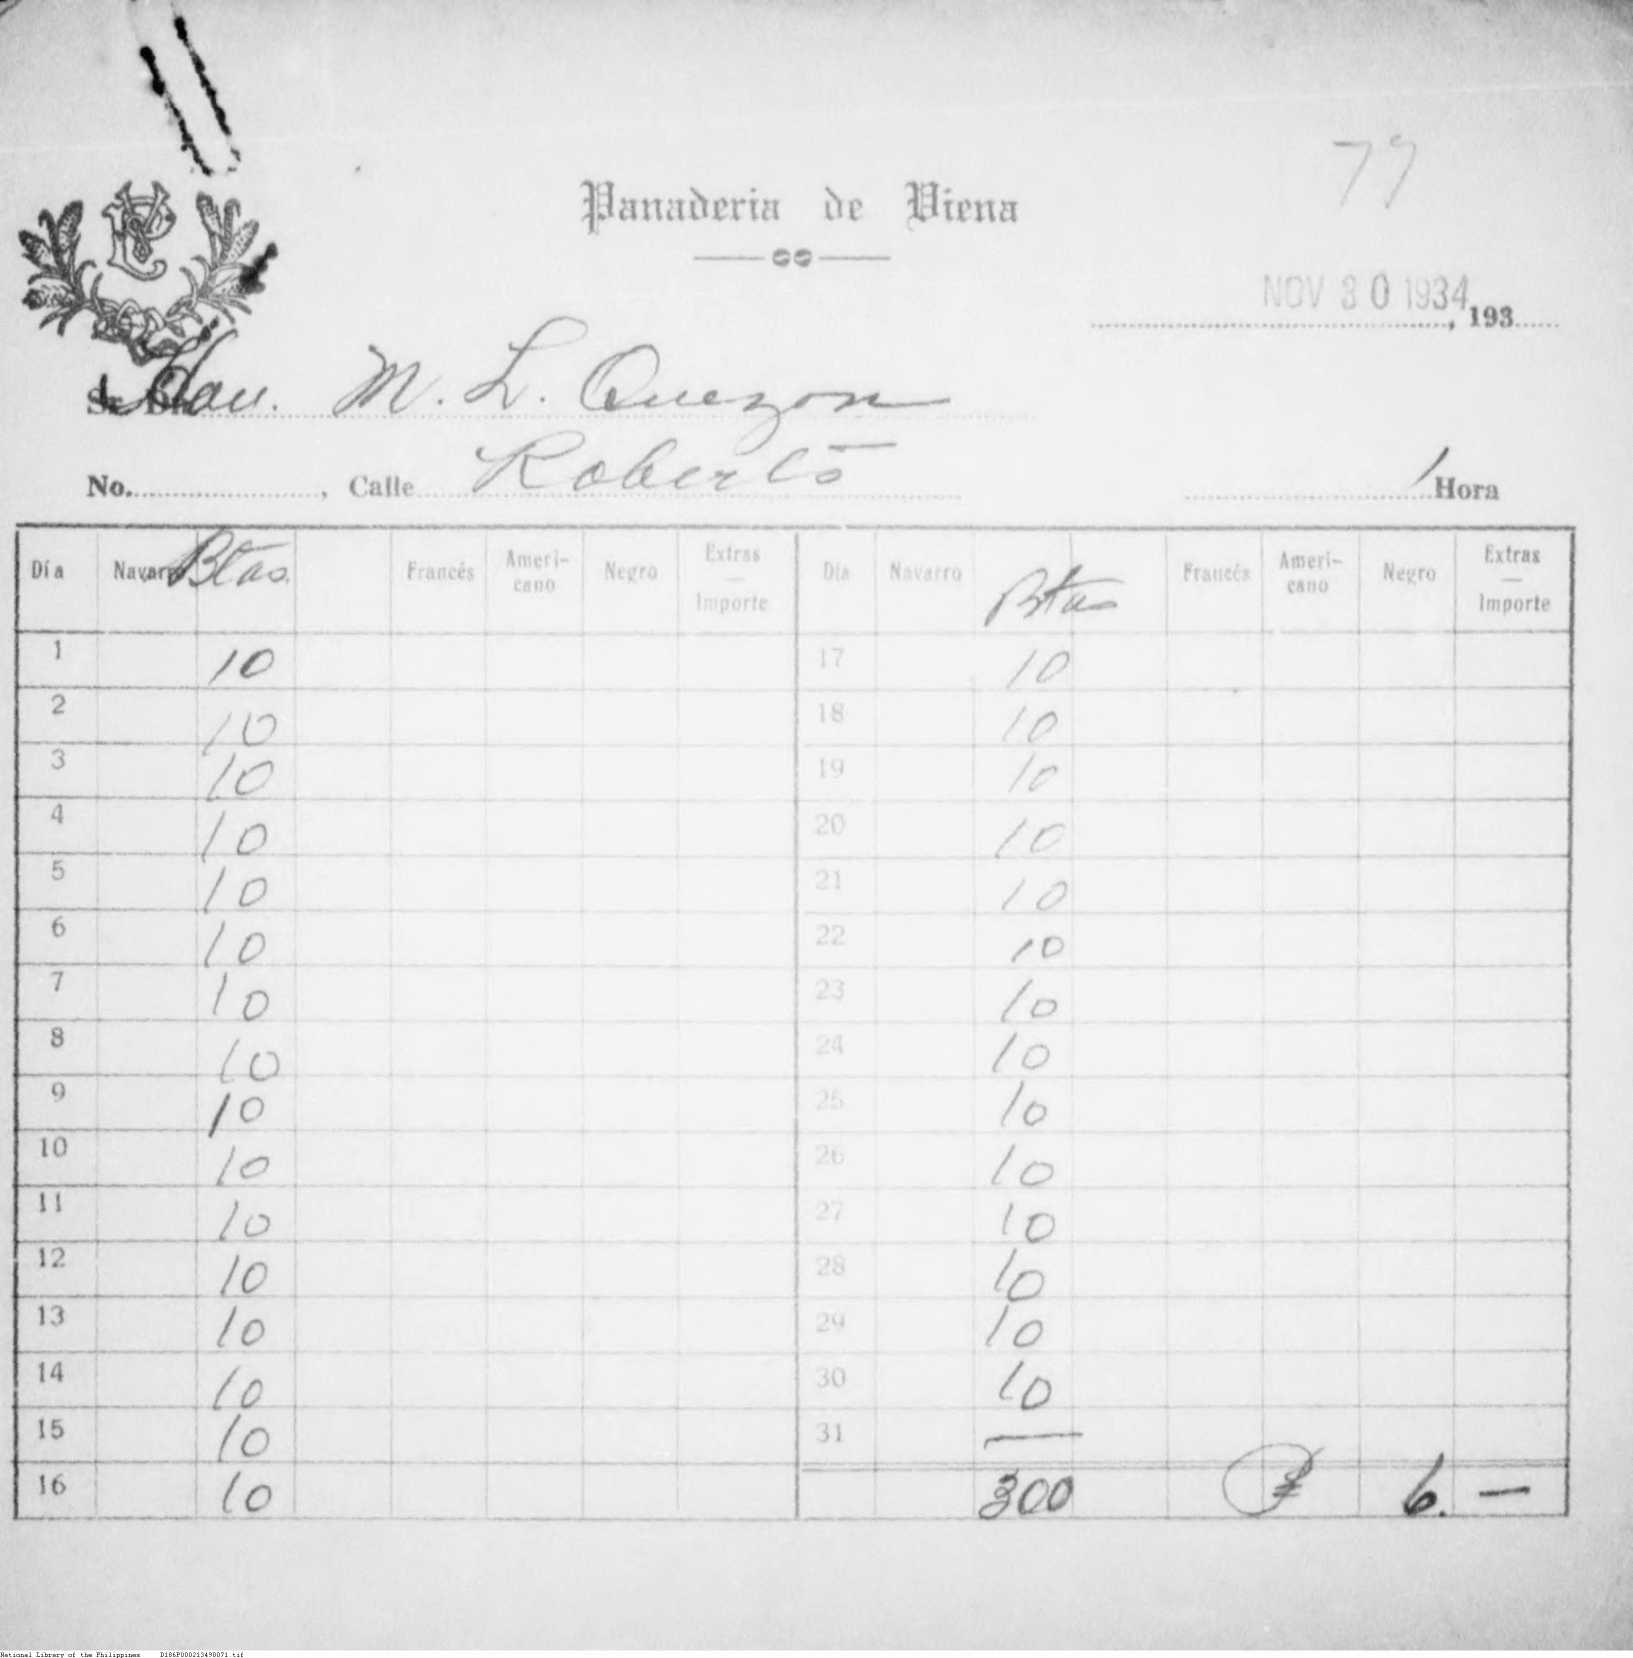 79
Panaderia de Viena
NOV 30 1934, 193
Sr. Dn. Hon. M. L. Quezon
No. , Calle Roberts Hora
Día Navarro Btas. Francés Ameri-cano Negro Extras — Importe Día Navarro Btas Francés Ameri-cano Negro Extras — Importe
1 10 17 10
2 10 18 10
3 10 19 10
4 10 20 10
5 10 21 10
6 10 22 10
7 10 23 10
8 10 24 10
9 10 25 10
10 10 26 10
11 10 27 10
12 10 28 10
13 10 29 10
14 10 30 10
15 10 31 —
16 10 300 ₱ 6. —
National Library of the Philippines D186P000213498071.tif